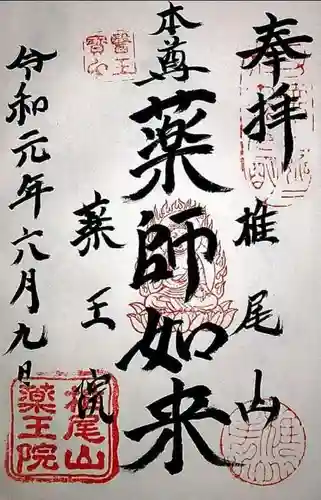 奉拝
椎尾山
本尊
薬師如来
薬王院
令和元年六月九日
醫王
寶印
椎尾山
薬王院